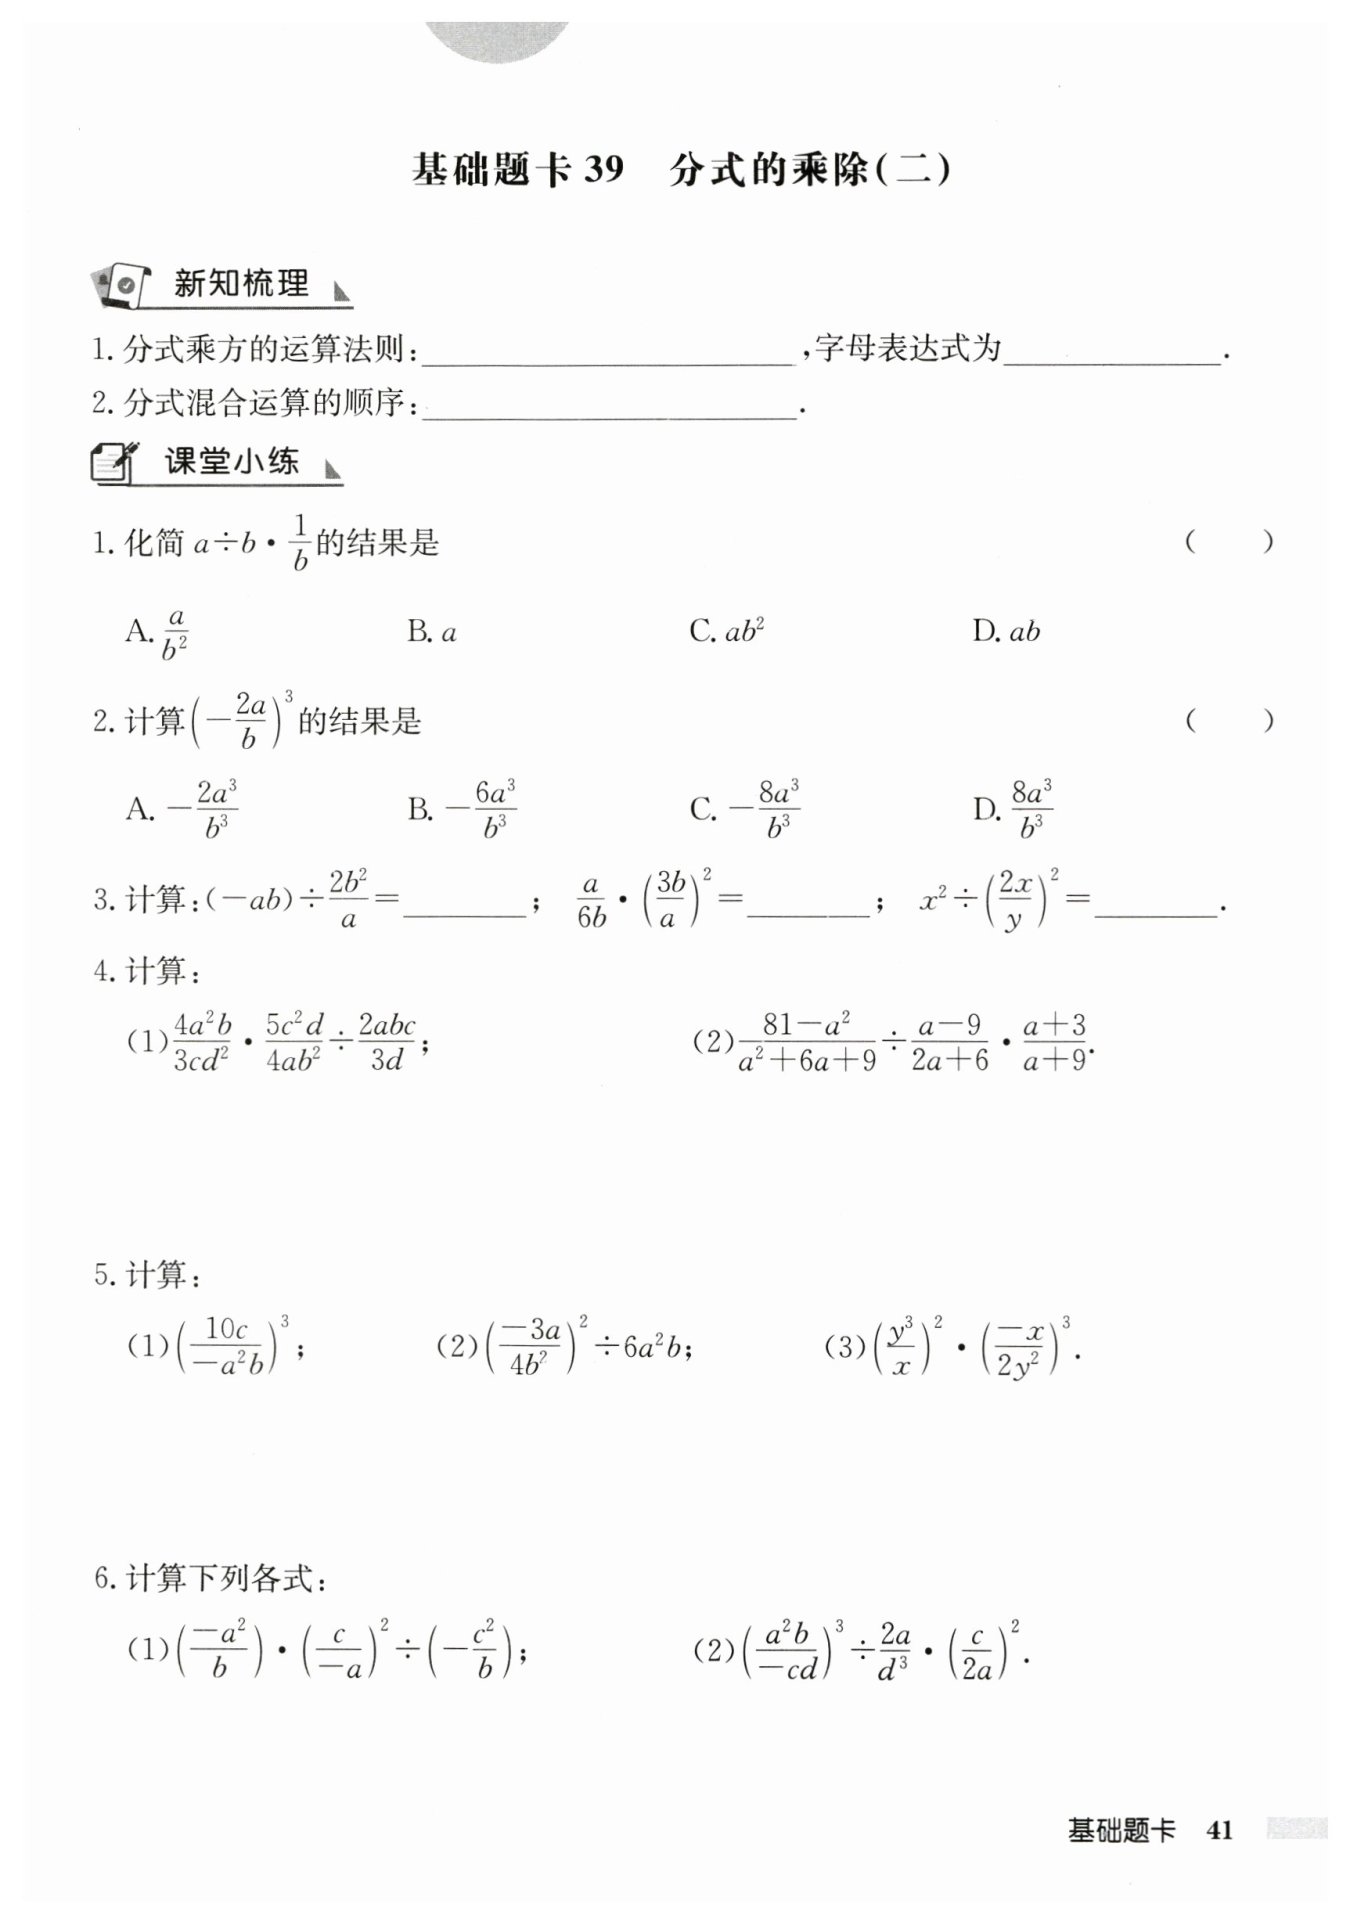 基础题卡 39　分式的乘除(二)
新知梳理
1. 分式乘方的运算法则:____________,字母表达式为____________.
2. 分式混合运算的顺序:____________.
课堂小练
1. 化简 $a÷b·\frac{1}{b}$ 的结果是 (　　)
A. $\frac{a}{b^2}$　B. $a$　C. $ab^2$　D. $ab$
2. 计算 $\left(-\frac{2a}{b}\right)^3$ 的结果是 (　　)
A. $-\frac{2a^3}{b^3}$　B. $-\frac{6a^3}{b^3}$　C. $-\frac{8a^3}{b^3}$　D. $\frac{8a^3}{b^3}$
3. 计算:$(-ab)÷\frac{2b^2}{a}=$________;　$\frac{a}{6b}·\left(\frac{3b}{a}\right)^2=$________;　$x^2÷\left(\frac{2x}{y}\right)^2=$________.
4. 计算:
(1) $\frac{4a^2b}{3cd^2}·\frac{5c^2d}{4ab^2}÷\frac{2abc}{3d}$;　(2) $\frac{81-a^2}{a^2+6a+9}÷\frac{a-9}{2a+6}·\frac{a+3}{a+9}$.
5. 计算:
(1) $\left(\frac{10c}{-a^2b}\right)^3$;　(2) $\left(\frac{-3a}{4b^2}\right)^2÷6a^2b$;　(3) $\left(\frac{y^3}{x}\right)^2·\left(\frac{-x}{2y^2}\right)^3$.
6. 计算下列各式:
(1) $\left(\frac{-a^2}{b}\right)·\left(\frac{c}{-a}\right)^2÷\left(-\frac{c^2}{b}\right)$;　(2) $\left(\frac{a^2b}{-cd}\right)^3÷\frac{2a}{d^3}·\left(\frac{c}{2a}\right)^2$.
基础题卡　41